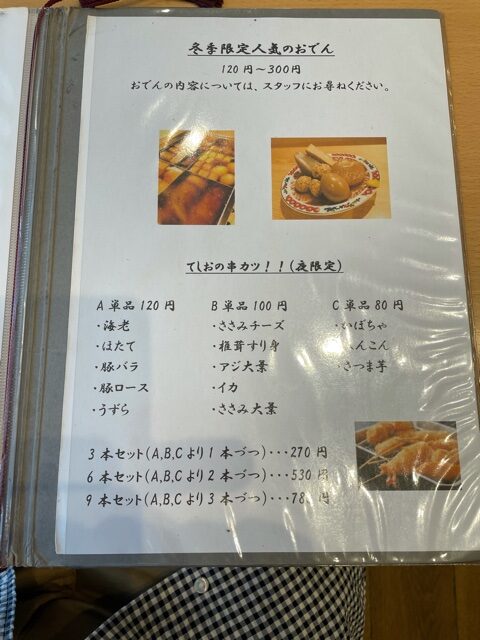 冬季限定人気のおでん
120円～300円
おでんの内容については、スタッフにお尋ねください。
てしおの串カツ！！(夜限定)
A単品120円
・海老
・ほたて
・豚バラ
・豚ロース
・うずら
B単品100円
・ささみチーズ
・椎茸すり身
・アジ大葉
・イカ
・ささみ大葉
C単品80円
かぼちゃ
れんこん
・さつま芋
3本セット(A,B,Cより1本づつ)・・・270円
6本セット(A,B,Cより2本づつ)・・・530円
9本セット(A,B,Cより3本づつ)・・・78 円